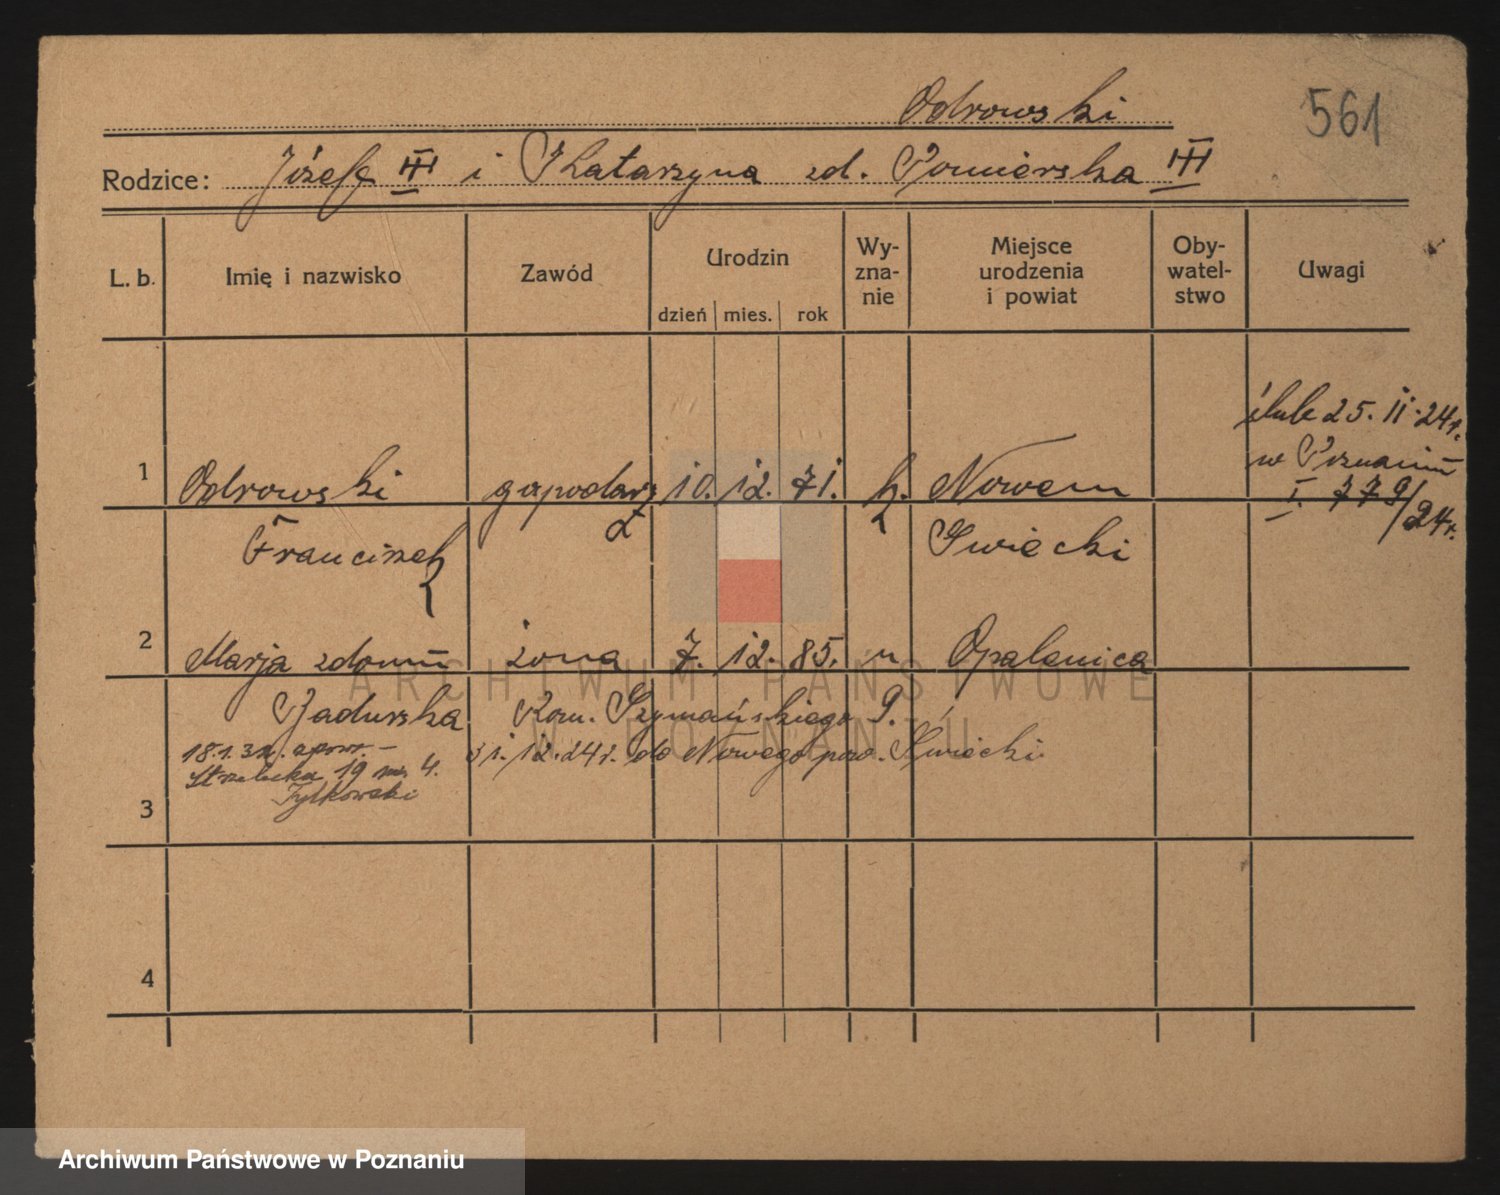 Odrowski
561
Rodzice: Józef III i Katarzyna zd. Pomierska III
L. b. Imię i nazwisko Zawód Urodzin Wy-zna-nie Miejsce urodzenia i powiat Oby-watel-stwo Uwagi
dzień mies. rok
ślub 25. II. 24 r.
w Poznaniu
1 Odrowski gospodarz 10. 12. 71. k. Nowem
I. 779/24 r.
Franciszek Świecki
2 Marja z domu żona 7. 12. 85. " Opalenica
Jadurska Kom. Szymańskiego 9.
18.1.32. 31. 12. 24 r. do Nowego pow. Świecki
Strzelecka 19 m. 4.
Tylkowski
3
4
ARCHIWUM PAŃSTWOWE
W POZNANIU
Archiwum Państwowe w Poznaniu